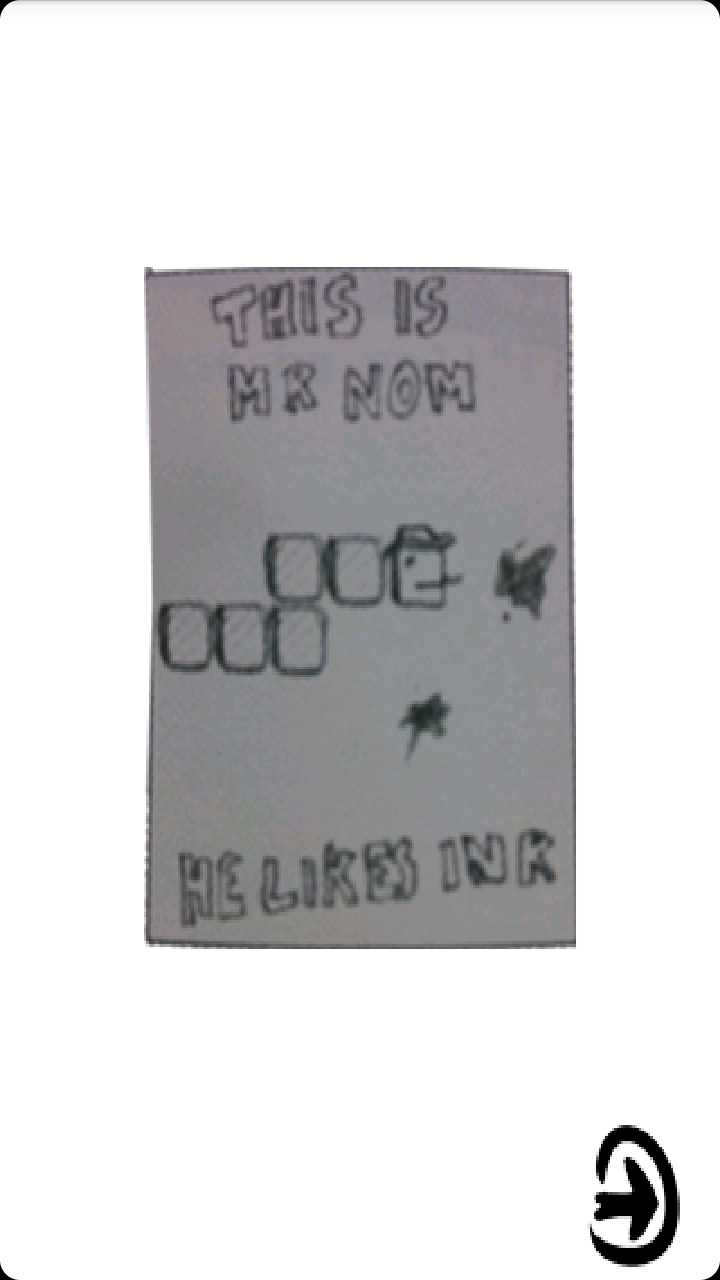 THIS IS
MR NOM
HE LIKES INK